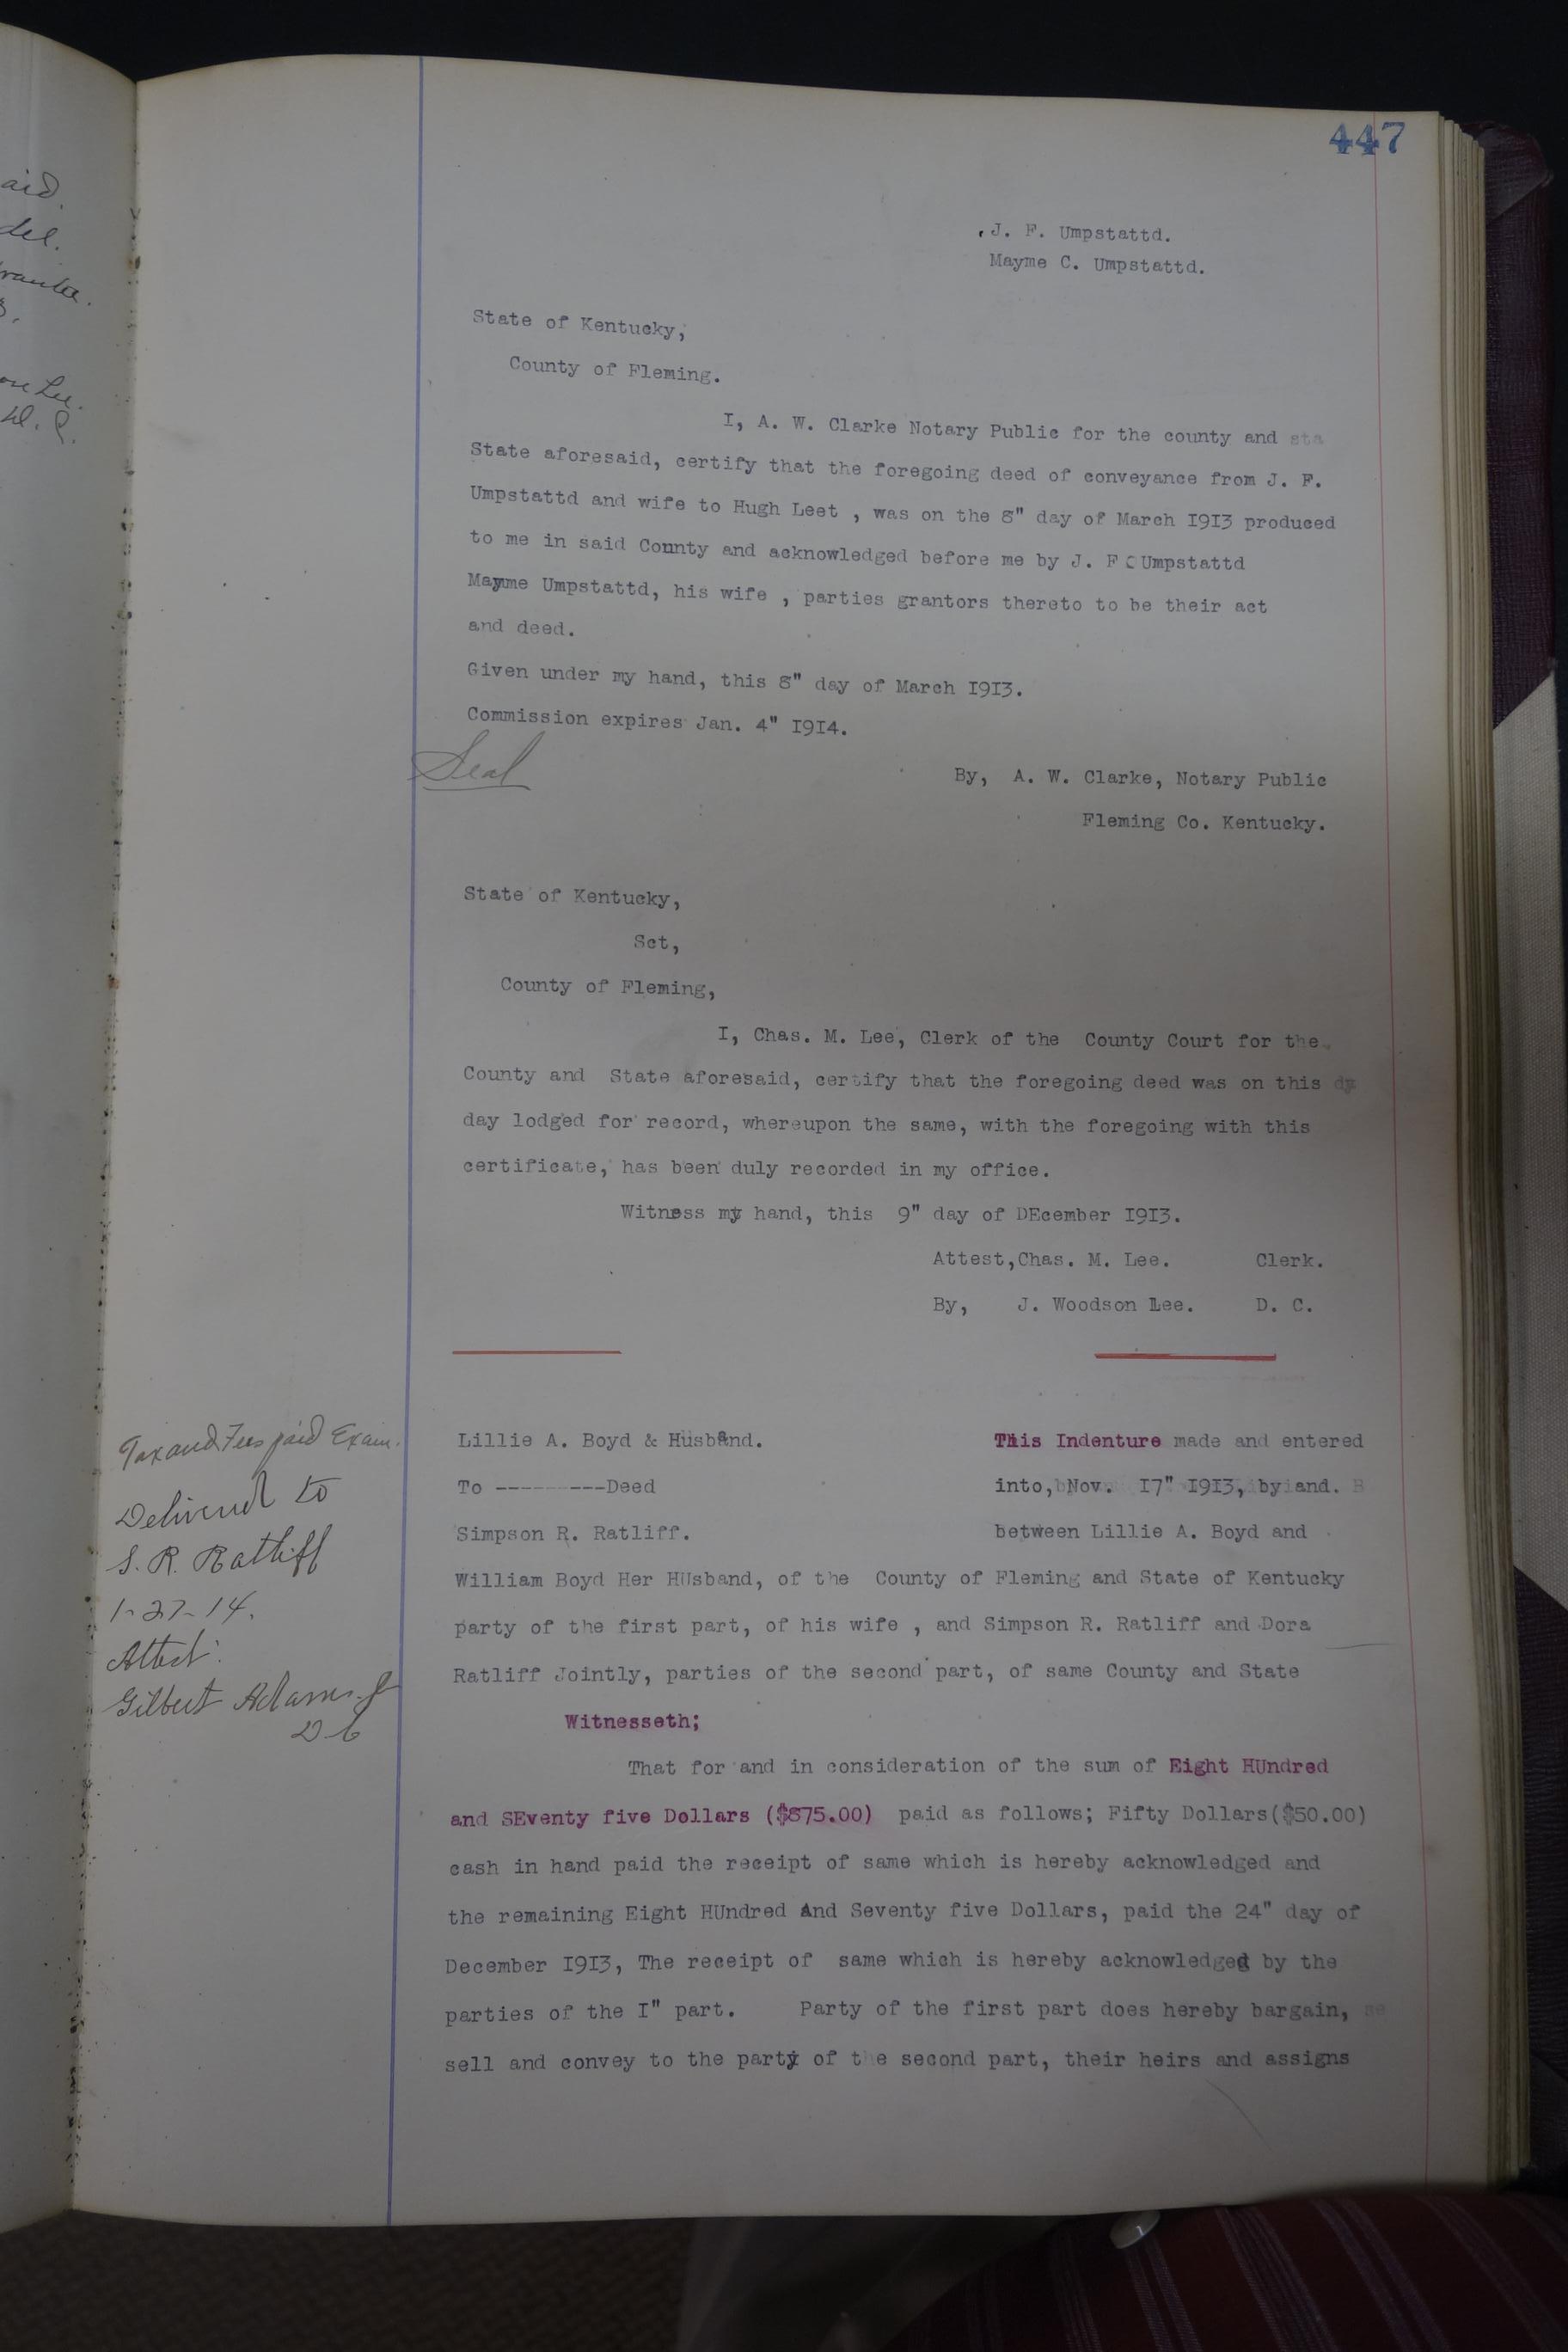 447
J. F. Umpstattd.
Mayme C. Umpstattd.
State of Kentucky,
County of Fleming.
I, A. W. Clarke Notary Public for the county and sta
State aforesaid, certify that the foregoing deed of conveyance from J. F.
Umpstattd and wife to Hugh Leet , was on the 8" day of March I9I3 produced
to me in said County and acknowledged before me by J. F C Umpstattd
Mayme Umpstattd, his wife , parties grantors thereto to be their act
and deed.
Given under my hand, this 8" day of March I9I3.
Commission expires Jan. 4" I9I4.
Seal
By, A. W. Clarke, Notary Public
Fleming Co. Kentucky.
State of Kentucky,
Sct,
County of Fleming,
I, Chas. M. Lee, Clerk of the County Court for the
County and State aforesaid, certify that the foregoing deed was on this dy
day lodged for record, whereupon the same, with the foregoing with this
certificate, has been duly recorded in my office.
Witness my hand, this 9" day of DEcember I9I3.
Attest,Chas. M. Lee. Clerk.
By, J. Woodson Lee. D. C.
Lillie A. Boyd & Husband.
To ---------Deed
Simpson R. Ratliff.
This Indenture made and entered
into, Nov. I7" I9I3, by and. B
between Lillie A. Boyd and
William Boyd Her HUsband, of the County of Fleming and State of Kentucky
party of the first part, of his wife , and Simpson R. Ratliff and Dora
Ratliff Jointly, parties of the second part, of same County and State
Witnesseth;
That for and in consideration of the sum of Eight HUndred
and SEventy five Dollars ($875.00) paid as follows; Fifty Dollars($50.00)
cash in hand paid the receipt of same which is hereby acknowledged and
the remaining Eight HUndred And Seventy five Dollars, paid the 24" day of
December I9I3, The receipt of same which is hereby acknowledged by the
parties of the I" part. Party of the first part does hereby bargain, se
sell and convey to the party of the second part, their heirs and assigns
Tax and Fees paid Exam.
Delivered to
S. R. Ratliff
1-27-14.
Attest:
Gilbert Adams Jr
D C
aid.
del.
on Lee.
D. C.